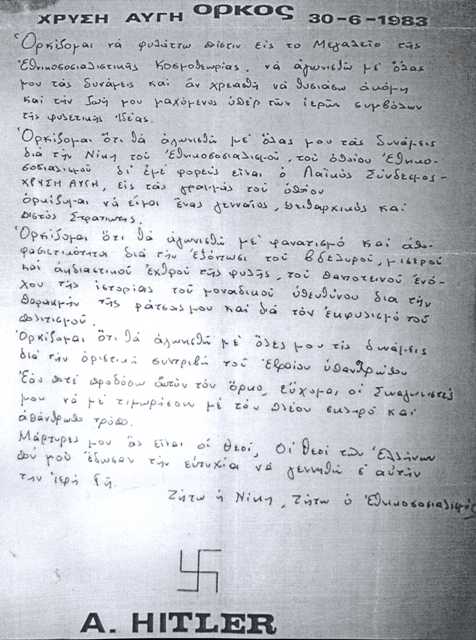 ΧΡΥΣΗ ΑΥΓΗ ΟΡΚΟΣ 30-6-1983
Ὁρκίζομαι νά φυλάττω πίστιν εἰς το Μεγαλείο τῆς
Ἐθνικοσοσιαλιστικῆς Κοσμοθεωρίας, νά ἀγωνισθῶ μέ ὅλας
μου τάς δυνάμεις καί ἄν χρειασθῆ νά θυσιάσω ἀκόμη
καί τήν ζωή μου μαχόμενος ὑπέρ τῶν ἱερῶν συμβόλων
τῆς φυλετικῆς ἰδέας.
Ὁρκίζομαι ὅτι θά ἀγωνισθῶ μέ ὅλας μου τάς δυνάμεις
διά τήν Νίκη τοῦ Ἐθνικοσοσιαλισμοῦ, τοῦ ὁποίου Ἐθνικο-
σοσιαλισμοῦ δι' ἐμέ φορεύς εἶναι ὁ Λαϊκός Σύνδεσμος-
ΧΡΥΣΗ ΑΥΓΗ, εἰς τάς γραμμάς τοῦ ὁποίου
ὁρκίζομαι νά εἶμαι ἕνας γενναῖος, πειθαρχικός καί
πιστός Στρατιώτης.
Ὁρκίζομαι ὅτι θά ἀγωνισθῶ μέ φανατισμό καί ἀπο-
φασιστικότητα διά τήν ἐξόντωσι τοῦ βδελυροῦ, μιαροῦ
καί ἀηδιαστικοῦ ἐχθροῦ τῆς φυλῆς, τοῦ ταπεινοῦ ἐνό-
χου τῆς ἱστορίας τοῦ μοναδικοῦ ὑπευθύνου δια τήν
παρακμήν τῆς ράτσας μου καί διά τόν ἐκφυλισμό τοῦ
πολιτισμοῦ.
Ὁρκίζομαι ὅτι θά ἀγωνισθῶ μέ ὅλες μου τίς δυνάμεις
διά τήν ὁριστική συντριβή τοῦ Ἑβραίου ὑπανθρώπου
Ἐάν ποτέ προδόσω αὐτόν τόν ὅρκο, εὔχομαι οἱ Συναγωνιστές
μου νά μέ τιμωρήσουν μέ τόν πλέον σκληρό καί
ἀπάνθρωπο τρόπο.
Μάρτυρες μου ἄς εἶναι οἱ Θεοί, Οἱ Θεοί τῶν Ἑλλήνων
πού μοῦ ἔδωσαν τήν εὐτυχία νά γεννηθῶ σ' αὐτήν
τήν ἱερή Γῆ.
Ζήτω ἡ Νίκη, Ζήτω ὁ Ἐθνικοσοσιαλισμός
A. HITLER